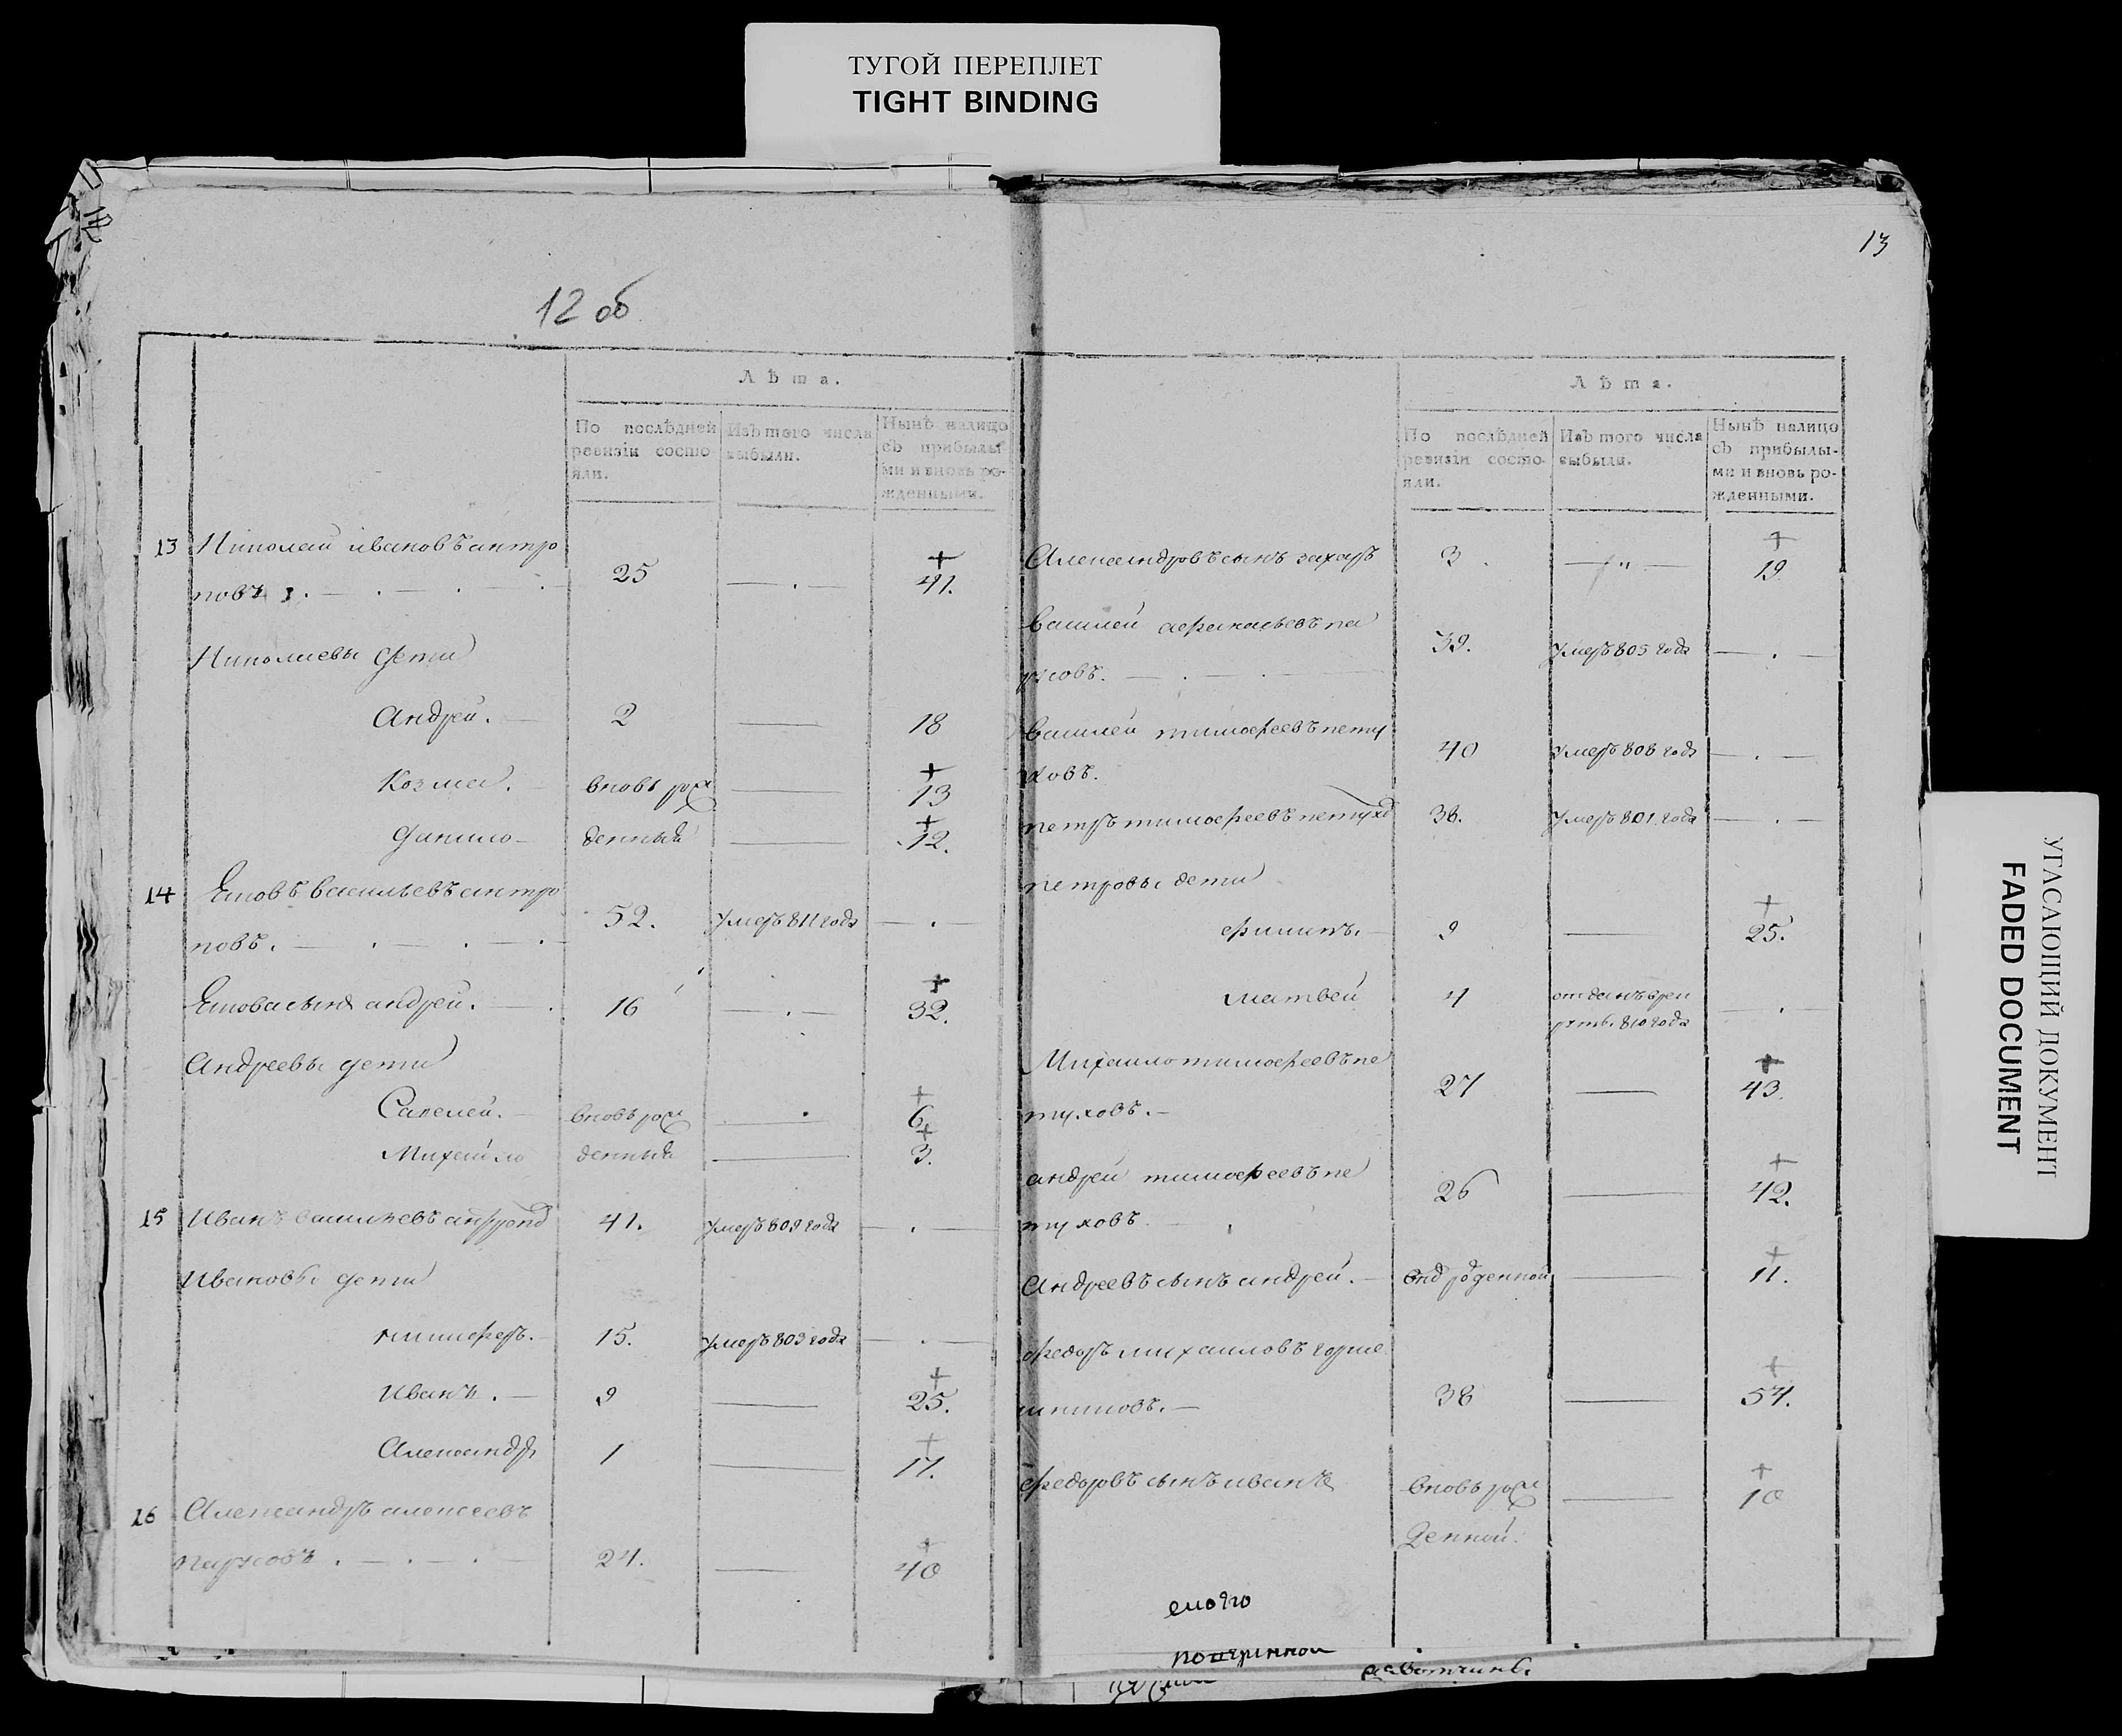 ТУГОЙ ПЕРЕПЛЕТ
TIGHT BINDING
12
12 об
Лѣта.
По послѣдней ревизіи состояли.
Изъ того числа выбыли.
Нынѣ налицо съ прибылыми и вновь рожденными.
13 Николай ивановъ антро
повъ 25 41.
Николаевы дети
Андрей. 2 18
Козма. вновь рож 13
данило денныя 12.
14 Яковъ васильевъ антро
повъ. 52. умеръ 811 года
Якова сынъ андрей. 16 32.
Андреевы дети
Савелей. вновь рож 6.
Михайло денныя 3.
15 Иванъ васильевъ антропо 41. умеръ 809 года
Ивановы дети
15. умеръ 803 года
Иванъ. 9 25.
Александръ 1 17.
16 Александръ алексеевъ
парусовъ. 24. 40
13
Лѣта.
По послѣдней ревизіи состояли.
Изъ того числа выбыли.
Нынѣ налицо съ прибылыми и вновь рожденными.
Александровъ сынъ захаръ 3 19
василей афанасьевъ па
русовъ. 39. умеръ 805 года
василей тимофеевъ пету
ховъ. 40 умеръ 808 года
петръ тимофеевъ петухо 38. умеръ 801 года
петровы дети
филипъ. 9 25.
матвей 4 отданъ врек
рутъ. 810 года
Михаило тимофеевъ пе
туховъ. 27 43.
андрей тимофеевъ пе
туховъ 26 42.
Андреевъ сынъ андрей. вно рожденной 11.
федоръ михаиловъ горше
шниковъ. 38 54.
федоровъ сынъ иванъ вновь рож 10
денной.
УГАСАЮЩИЙ ДОКУМЕНТ
FADED DOCUMENT